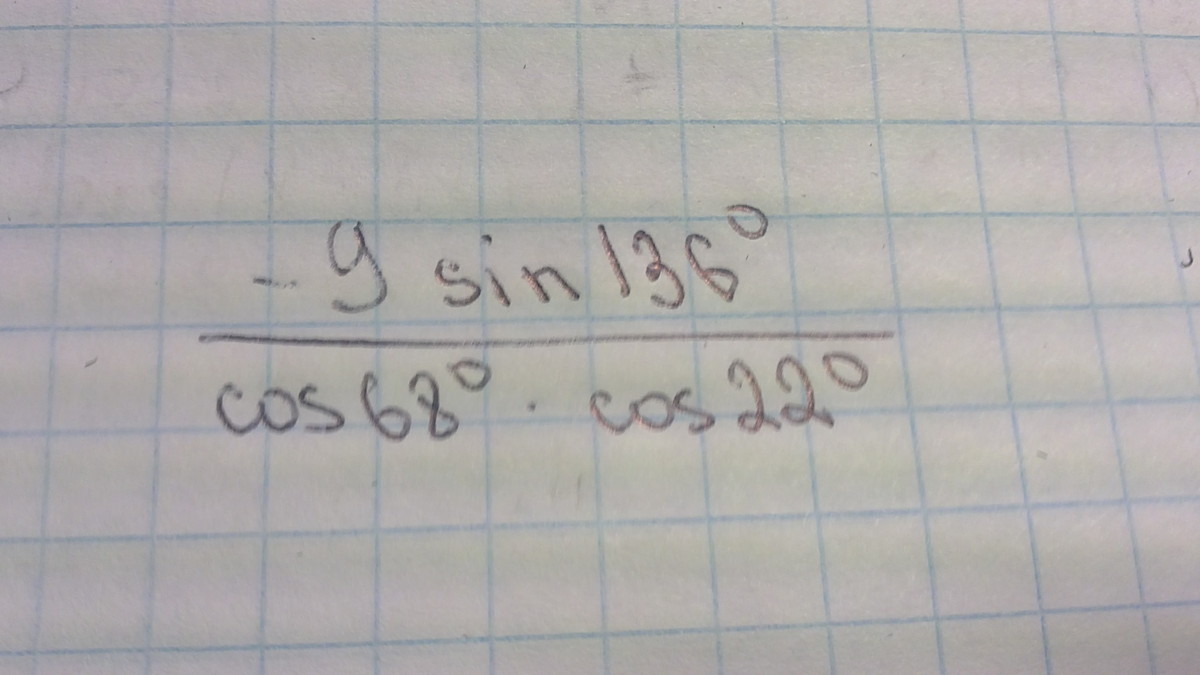 - 9 sin 136°
cos 68° · cos 22°